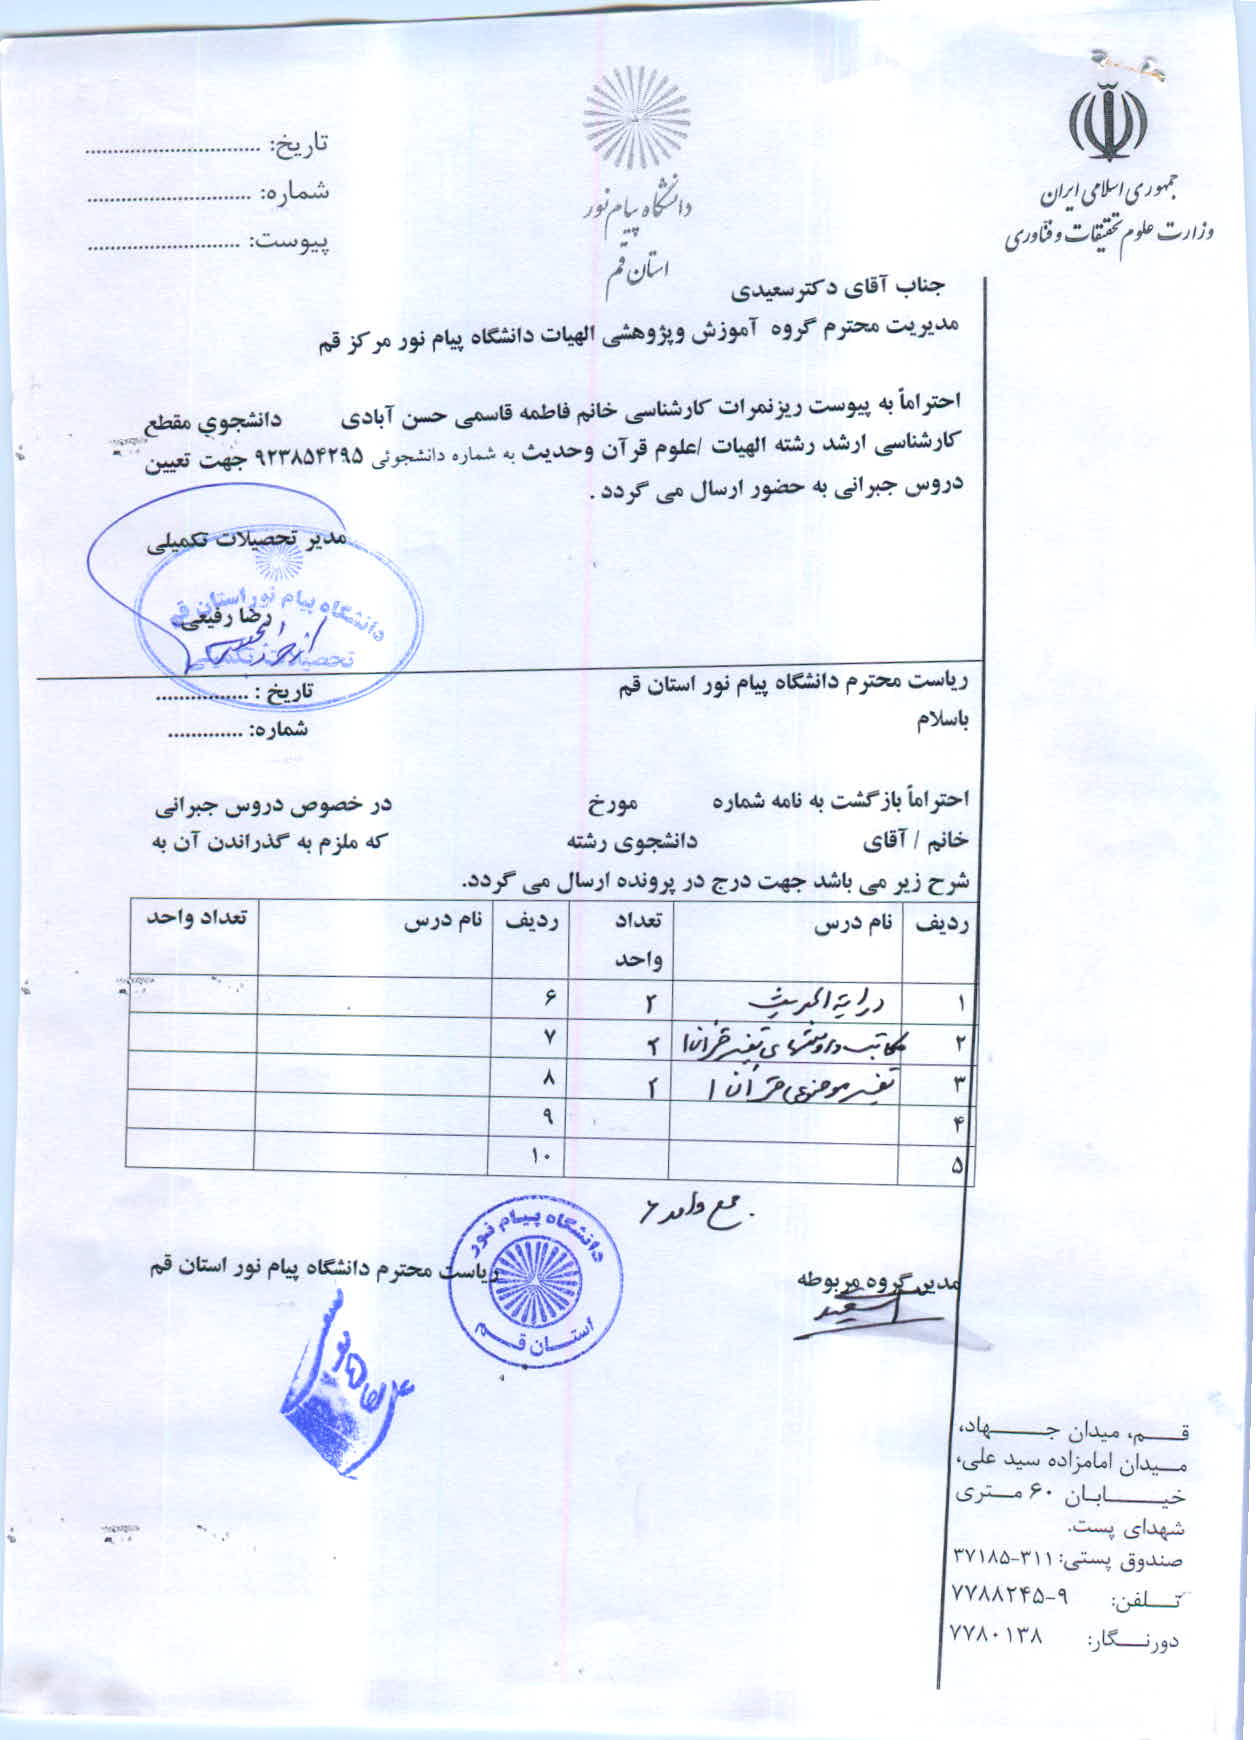 جمهوری اسلامی ایران
وزارت علوم تحقیقات و فنّاوری
دانشگاه پیام نور
استان قم
تاریخ: ................................
شماره: ..............................
پیوست: ............................
جناب آقای دکترسعیدی
مدیریت محترم گروه آموزش وپژوهشی الهیات دانشگاه پیام نور مرکز قم
احتراماً به پیوست ریزنمرات کارشناسی خانم فاطمه قاسمی حسن آبادی دانشجوی مقطع
کارشناسی ارشد رشته الهیات /علوم قرآن وحدیث به شماره دانشجوئی ۹۲۳۸۵۴۲۹۵ جهت تعیین
دروس جبرانی به حضور ارسال می گردد .
مدیر تحصیلات تکمیلی
رضا رفیعی
دانشگاه پیام نور استان قم
تحصیلات تکمیلی
ریاست محترم دانشگاه پیام نور استان قم
تاریخ : ................
باسلام
شماره: .............
احتراماً بازگشت به نامه شماره مورخ در خصوص دروس جبرانی
خانم / آقای دانشجوی رشته که ملزم به گذراندن آن به
شرح زیر می باشد جهت درج در پرونده ارسال می گردد.
ردیف نام درس تعداد واحد ردیف نام درس تعداد واحد
۱ درایة الحدیث ۲ ۶
۲ مکاتب و روشهای تفسیر قرآن ۱ ۲ ۷
۳ تفسیر موضوعی قرآن ۱ ۲ ۸
۴ ۹
۵ ۱۰
جمع واحد ۶
مدیر گروه مربوطه
سعیدی
ریاست محترم دانشگاه پیام نور استان قم
دانشگاه پیام نور
استان قم
قم، میدان جهاد،
میدان امامزاده سید علی،
خیابان ۶۰ متری
شهدای پست.
صندوق پستی: ۳۱۱-۳۷۱۸۵
تلفن: ۹-۷۷۸۸۲۴۵
دورنگار: ۷۷۸۰۱۳۸